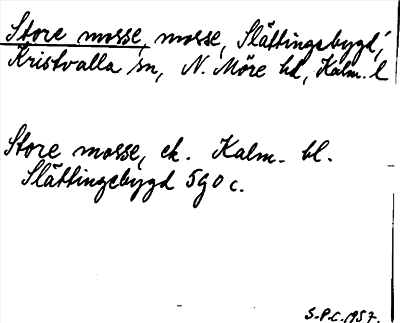 Store mosse, mosse, Slättingebygd,
Kristvalla sn, N. Möre hd, Kalm. l
Store mosse, ek. Kalm. bl.
Slättingebygd 5g0c.
S.P.C. 1957.